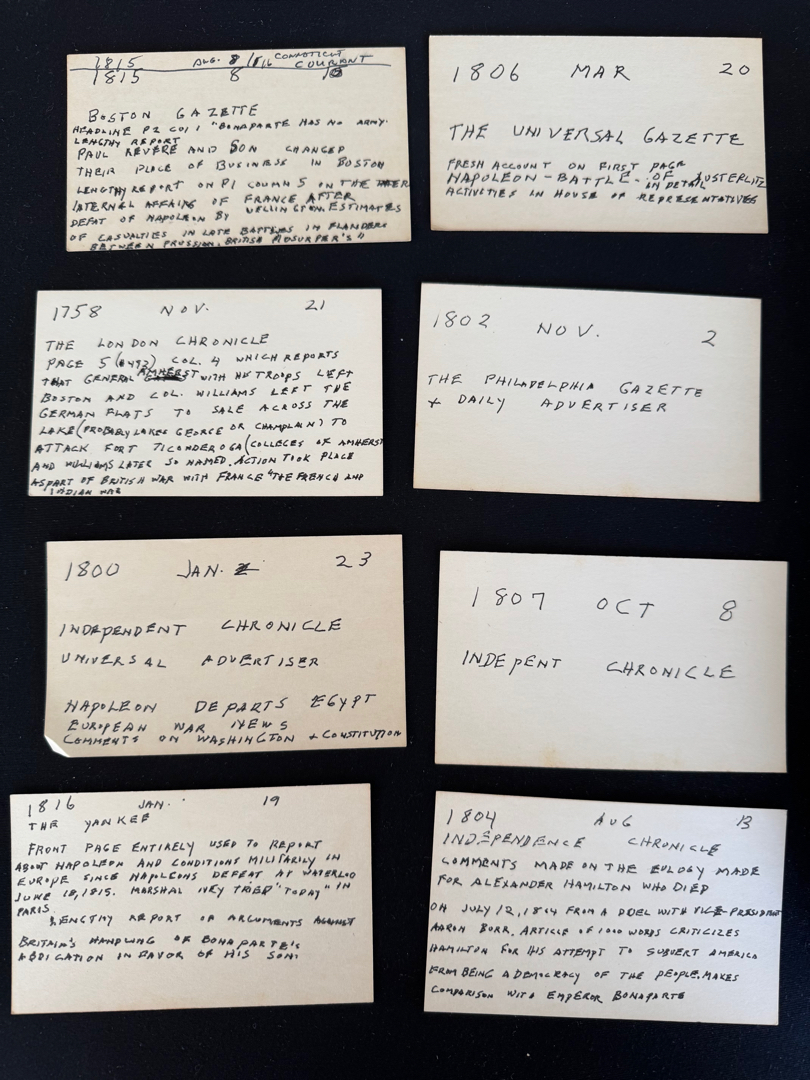 1815 AUG. 8/1816 CONNCTICUT COURANT
1815 8 10
BOSTON GAZETTE
HEADLINE P2 COL 1 "BONAPARTE HAS NO ARMY.
LENGTHY REPORT
PAUL REVERE AND SON CHANGED
THEIR PLACE OF BUSINESS IN BOSTON
LENGTHY REPORT ON P1 COUMN 5 ON THE
INTERNEL AFFAIRS OF FRANCE AFTER
DEFAT OF NAPOLEON BY WELLINGTON. ESTIMATES
OF CASUALTIES IN LATE BATTLES IN FLANDERS
BETWEEN PRUSSIAN, BRITISH
1806 MAR 20
THE UNIVERSAL GAZETTE
FRESH ACCOUNT ON FIRST PAGE
NAPOLEON-BATTLE-OF AUSTERLITZ
IN DETAIL
ACTIVITIES IN HOUSE OF REPRESENTATIVES
1758 NOV. 21
THE LONDON CHRONICLE
PAGE 5 (#492) COL. 4 WHICH REPORTS
THAT GENERAL AMHERST WITH HIS TROOPS LEFT
BOSTON AND COL. WILLIAMS LEFT THE
GERMAN FLATS TO SALE ACROSS THE
LAKE (PROBABLY LAKES GEORGE OR CHAMPLAIN) TO
ATTACK FORT TICONDEROGA (COLLEGES OF AMHERST
AND WILLIAMS LATER SO NAMED. ACTION TOOK PLACE
AS PART OF BRITISH WAR WITH FRANCE "THE FRENCH AND
INDIAN WAR
1802 NOV. 2
THE PHILADELPHIA GAZETTE
+ DAILY ADVERTISER
1800 JAN. 23
INDEPENDENT CHRONICLE
UNIVERSAL ADVERTISER
NAPOLEON DEPARTS EGYPT
EUROPEAN WAR NEWS
COMMENTS ON WASHINGTON + CONSTITUTION
1807 OCT 8
INDEPENT CHRONICLE
1816 JAN. 19
THE YANKEE
FRONT PAGE ENTIRELY USED TO REPORT
ABOUT NAPOLEON AND CONDITIONS MILITARILY IN
EUROPE SINCE NAPOLEONS DEFEAT AT WATERLOO
JUNE 18, 1815. MARSHAL NEY TRIED "TODAY" IN
PARIS.
LENGTHY REPORT OF ARGUMENTS AGAINST
BRITAIN'S HANDLING OF BONAPARTE'S
ABDICATION IN FAVOR OF HIS SON.
1804 AUG 13
INDEPENDENCE CHRONICLE
COMMENTS MADE ON THE EULOGY MADE
FOR ALEXANDER HAMILTON WHO DIED
ON JULY 12, 1804 FROM A DUEL WITH VICE-PRESIDENT
AARON BURR. ARTICLE OF 1000 WORDS CRITICIZES
HAMILTON FOR HIS ATTEMPT TO SUBVERT AMERICA
FROM BEING A DEMOCRACY OF THE PEOPLE. MAKES
COMPARISON WITH EMPEROR BONAPARTE